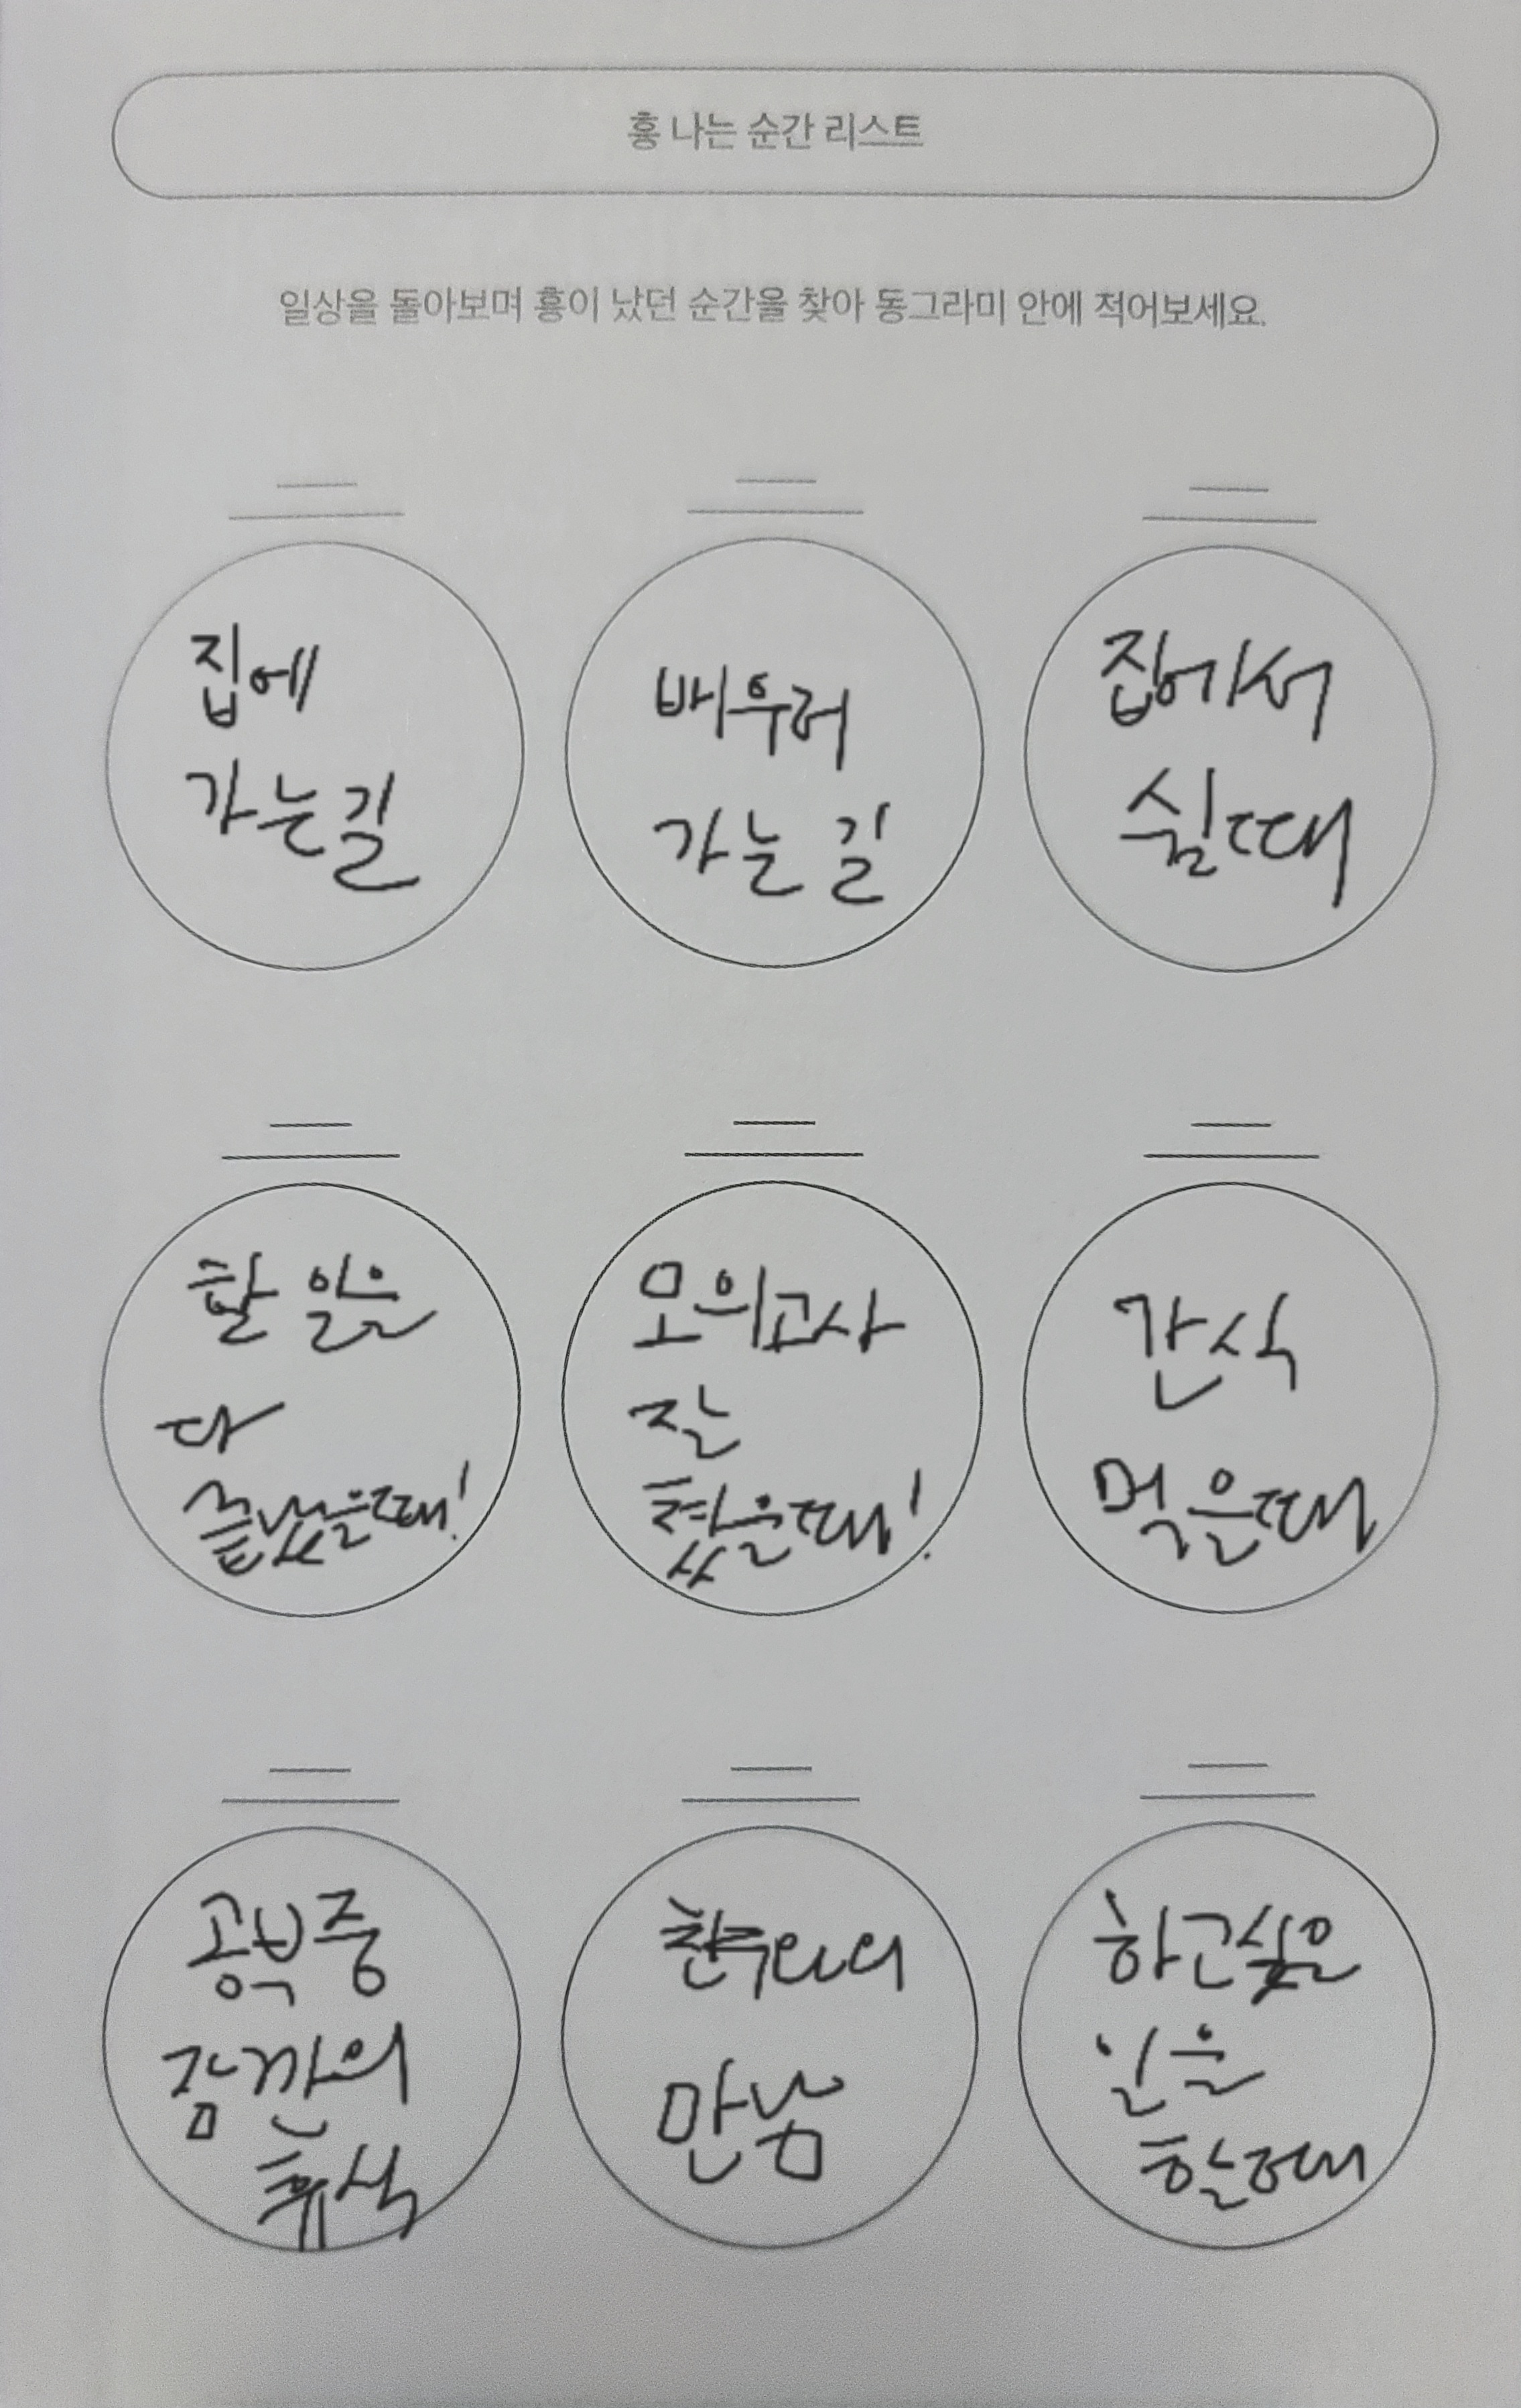 흥 나는 순간 리스트
일상을 돌아보며 흥이 났던 순간을 찾아 동그라미 안에 적어보세요.
집에
가는길
배우러
가는 길
집에서
쉴때
할 일을
다
끝냈을때!
모의고사
잘
쳤을때!
간식
먹을때
공부중
잠깐의
휴식
친구와의
만남
하고싶은
일을
할때